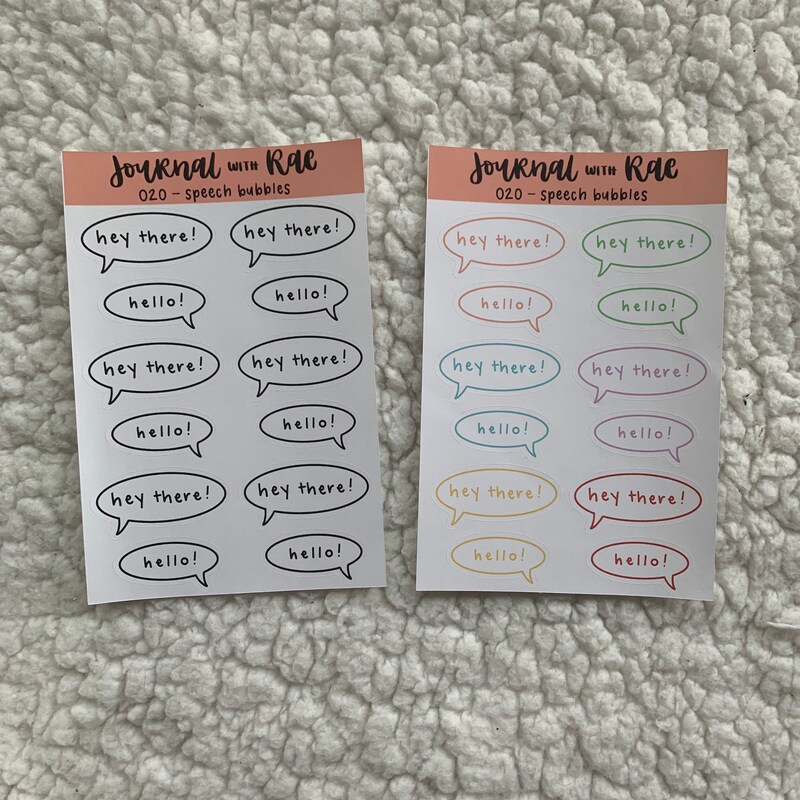 Journal with Rae
020 - speech bubbles
hey there! hey there!
hello! hello!
hey there! hey there!
hello! hello!
hey there! hey there!
hello! hello!
Journal with Rae
020 - speech bubbles
hey there! hey there!
hello! hello!
hey there! hey there!
hello! hello!
hey there! hey there!
hello! hello!